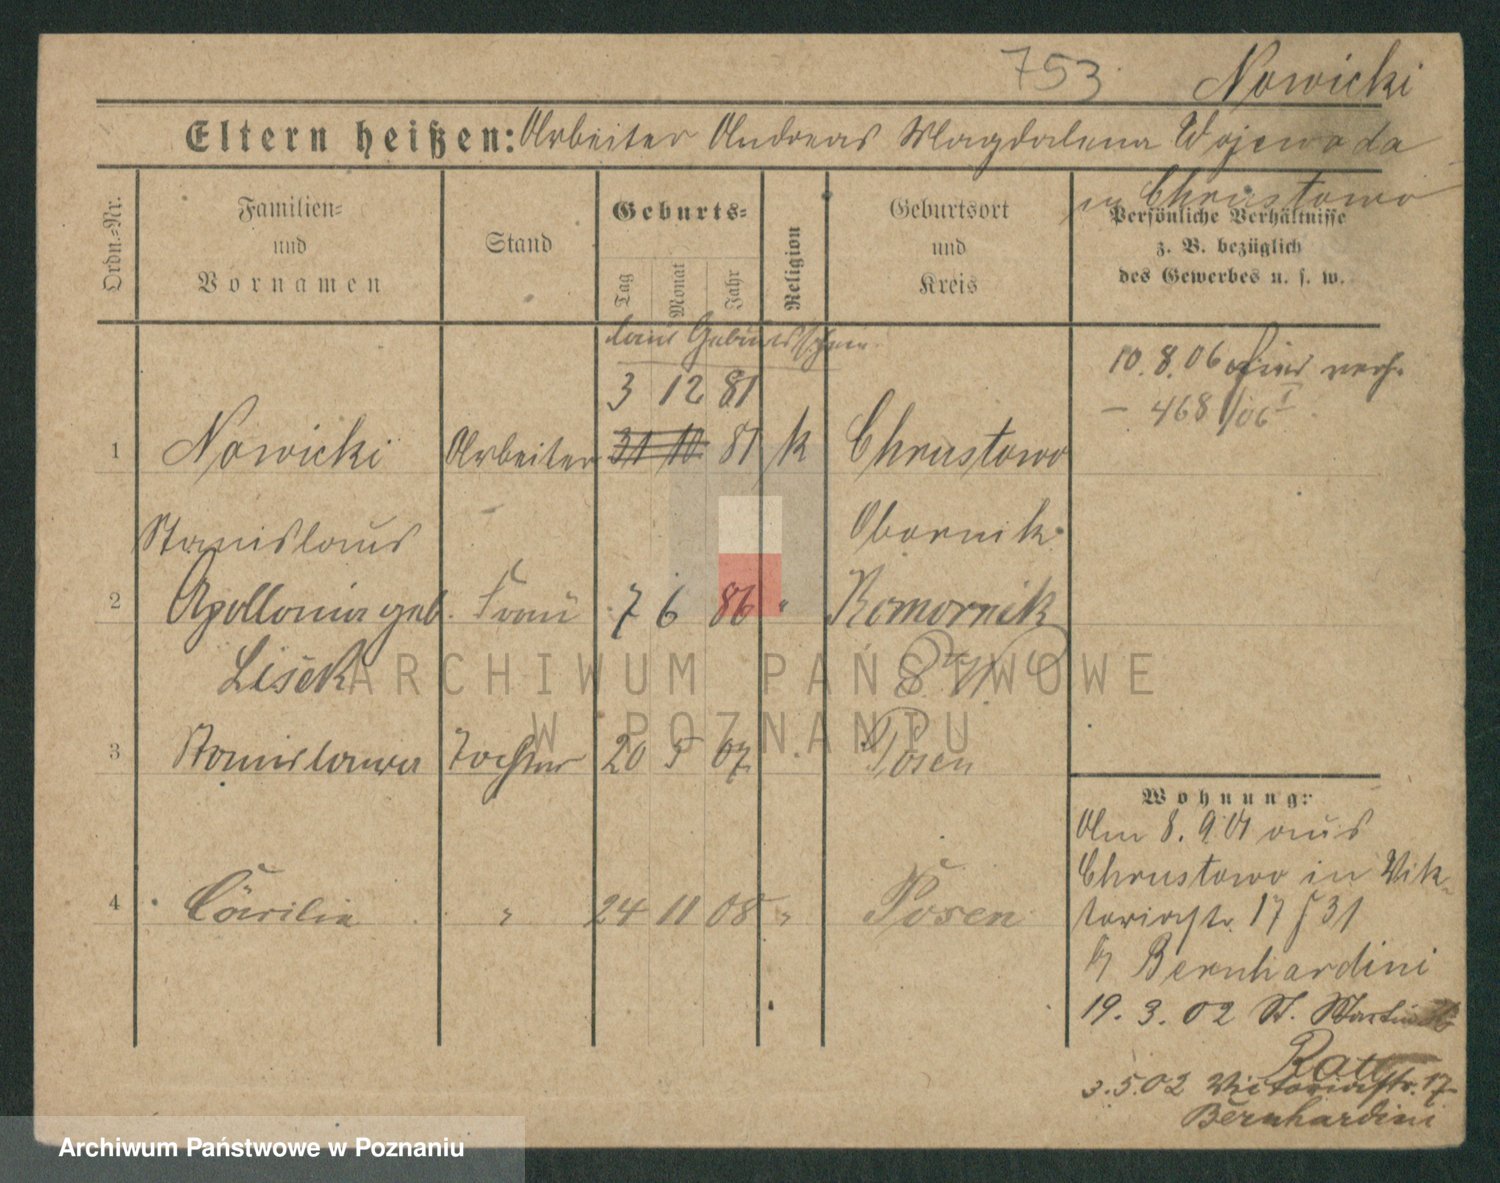 753 Nowicki
Eltern heißen: Arbeiter Andreas Magdalena Wojewoda
in Chrustowo
Ordn.-Nr.
Familien-
und
Vornamen
Stand
Geburts-
Tag
Monat
Jahr
Religion
Geburtsort
und
Kreis
Persönliche Verhältnisse
z. B. bezüglich
des Gewerbes u. s. w.
laut Geburtsschein
3 12 81
10. 8. 06
468/06
1 Nowicki Arbeiter 31 10 81 k Chrustowo
Stanislaus Obornik
2 Apollonia geb. Frau 7 6 86 " Komornik
Lisek P. W.
3 Stanislawa Tochter 20 5 07 Posen
4 Cäcilie " 24 11 08 " Posen
Wohnung:
Am 8. 9. 01 aus
Chrustowo in Vik-
toriastr. 17 31
b/ Bernhardini
19. 3. 02 St. Martin
3. 5. 02 Victoriastr. 17
Bernhardini
ARCHIWUM PAŃSTWOWE
W POZNANIU
Archiwum Państwowe w Poznaniu